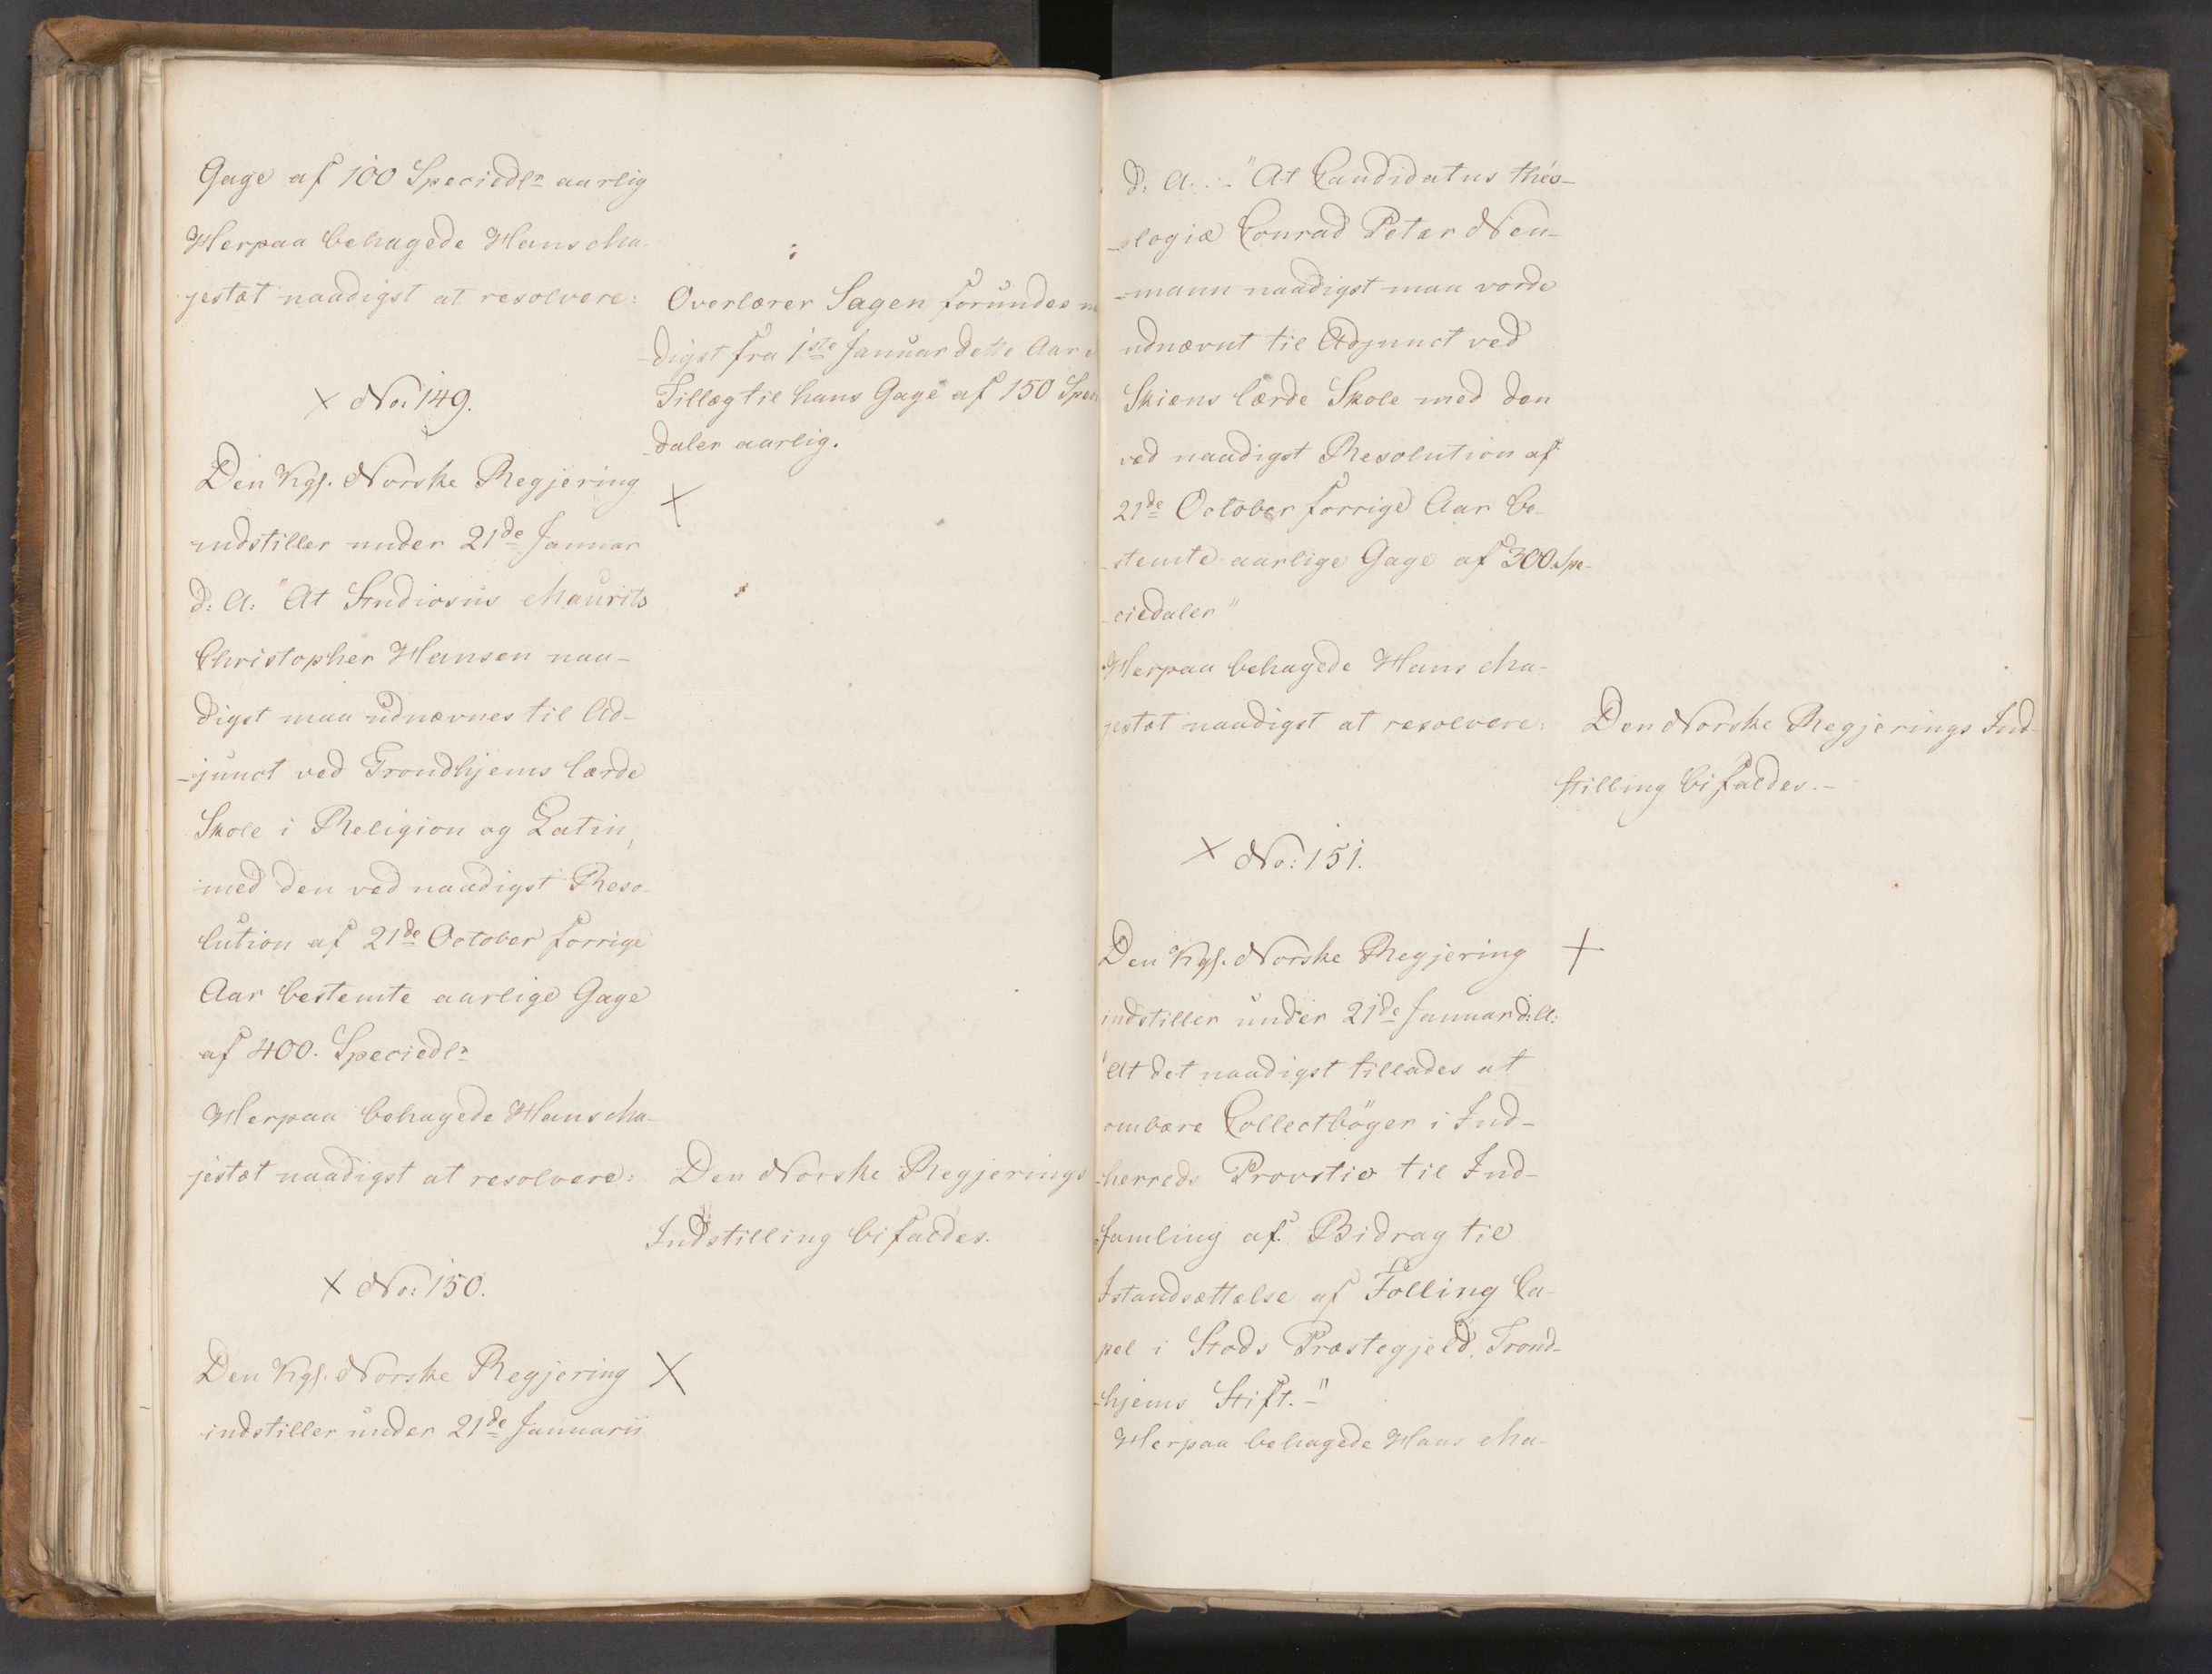 Gage af 100 Speciedlr aarlig
Herpaa behagede Hans Ma-
jestæt naadigst at resolvere:
Overlærer Sagen forundes
digst fra 1ste Januar dette Aar
Tillæg til hans Gage af 150 Speci
daler aarlig.
x No: 149.
Den Kgl. Norske Regjering
x
indstiller under 21de Januar
d: A: "At Studiosus Maurits
Christopher Hansen naa-
digst maa udnævnes til Ad-
-junct ved Trondhjems lærde
Skole i Religion og Latin,
med den ved naadigst Reso-
lution af 21de October forrige
Aar bestemte aarlige Gage
af 400. Speciedlr
Herpaa behagede Hans Ma-
jestæt naadigst at resolvere:
Den Norske Regjerings
Indstilling bifaldes.
x No: 150.
Den Kgl. Norske Regjering
x
indstiller under 21de Januarii
d: A: "At Candidatus theo-
-logiæ Conrad Peter Neu-
-mann naadigst maa vorde
udnævnt til Adjunct ved
Skiens lærde Skole med den
ved naadigst Resolution af
21de October forrige Aar be-
-stemte aarlige Gage af 300. Spe-
-ciedaler"
Herpaa behagede Hans Ma-
jestæt naadigst at resolvere:
Den Norske Regjerings Ind-
stilling bifaldes.-
x No: 151.
Den Kgl. Norske Regjering
+
indstiller under 21de Januar d: A:
"At det naadigst tillades at
ombære Collectbøger i Ind-
-herreds Provstie til Ind-
samling af Bidrag til
Istandsættelse af Følling Ca-
pel i Stods Præstegjeld, Trond-
-hjems Stift.-"
Herpaa behagede Hans Ma-